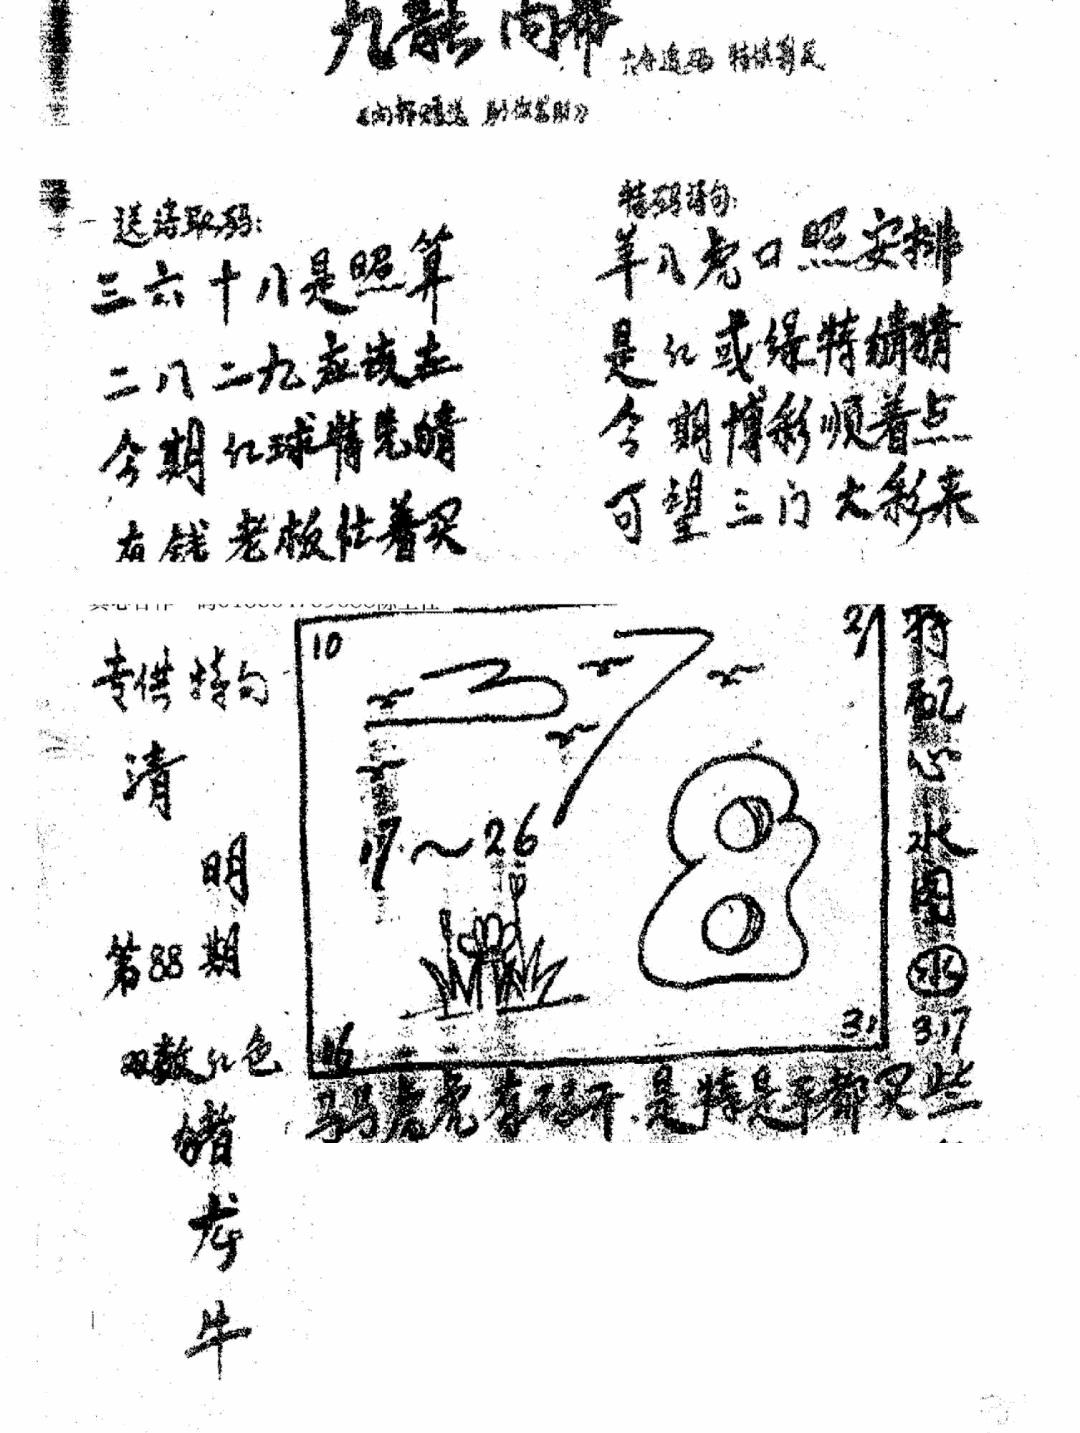 九龍内幕
送诗取码:
三六十八是照算
二八二九应该在
今期红球特先睛
有钱老板仕着买
特码诗句:
羊八虎口照安排
是红或绿特睛睛
今期博彩顺着点
可望三门大彩来
专供特句
清
明
第88期
双数红色
猪
龙
牛
10
21
17~26
16
31
心水图
水
3.17
马马虎虎有码开.是特是平都买些